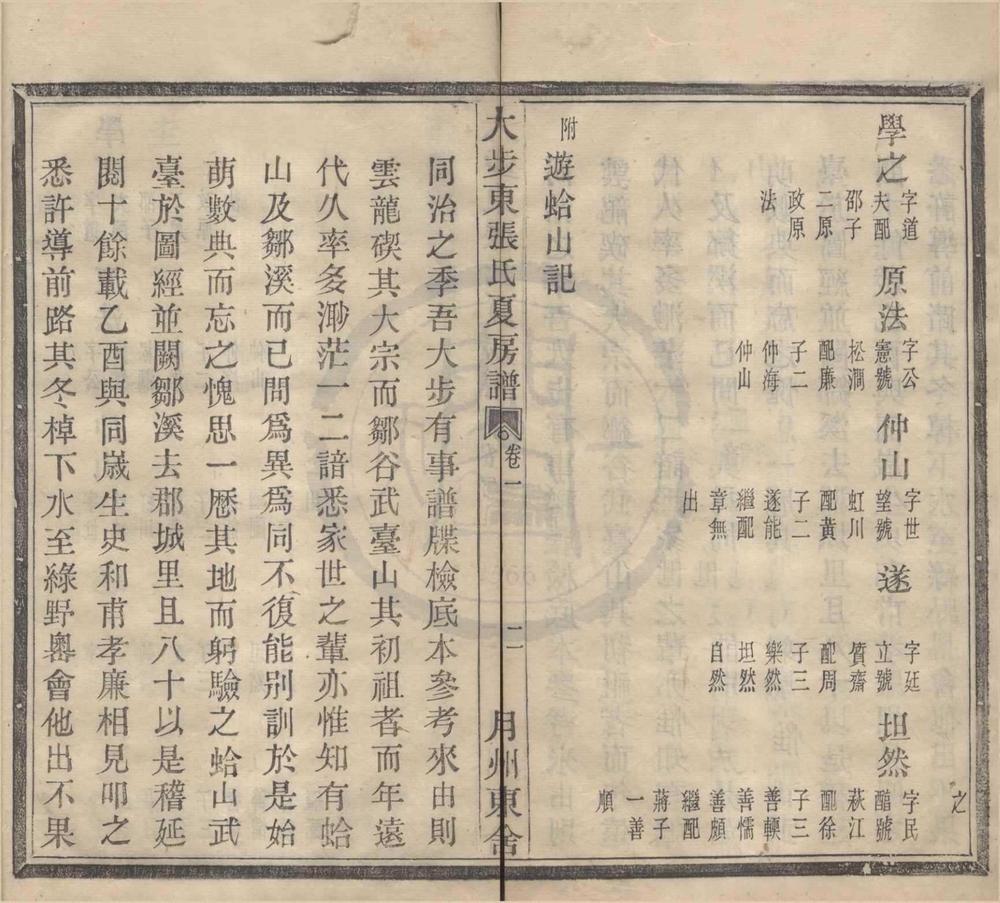 學之
字道
夫配
邵子
二原
政原
法
原法
字公
憲號
松澗
配廉
子二
仲海
仲山
仲山
字世
望號
虹川
配黃
子二
遂能
繼配
章無
出
遂
字廷
立號
質齋
配周
子三
樂然
坦然
自然
坦然
字民
醋號
萩江
配徐
子三
善輭
善懦
善頗
繼配
蔣子
一善
順
之
附
遊蛤山記
大步東張氏夏房譜
卷一
二
月州東舍
同治之季吾大步有事譜牒檢底本參考來由則
雲龍碶其大宗而鄒谷武臺山其初祖者而年遠
代久率多渺茫一二諳悉家世之輩亦惟知有蛤
山及鄒溪而已間爲異爲同不復能别訓於是始
萌數典而忘之愧思一歷其地而躬驗之蛤山武
臺於圖經並闕鄒溪去郡城里且八十以是稽延
閱十餘載乙酉與同歲生史和甫孝廉相見叩之
悉許導前路其冬棹下水至綠野嶴會他出不果